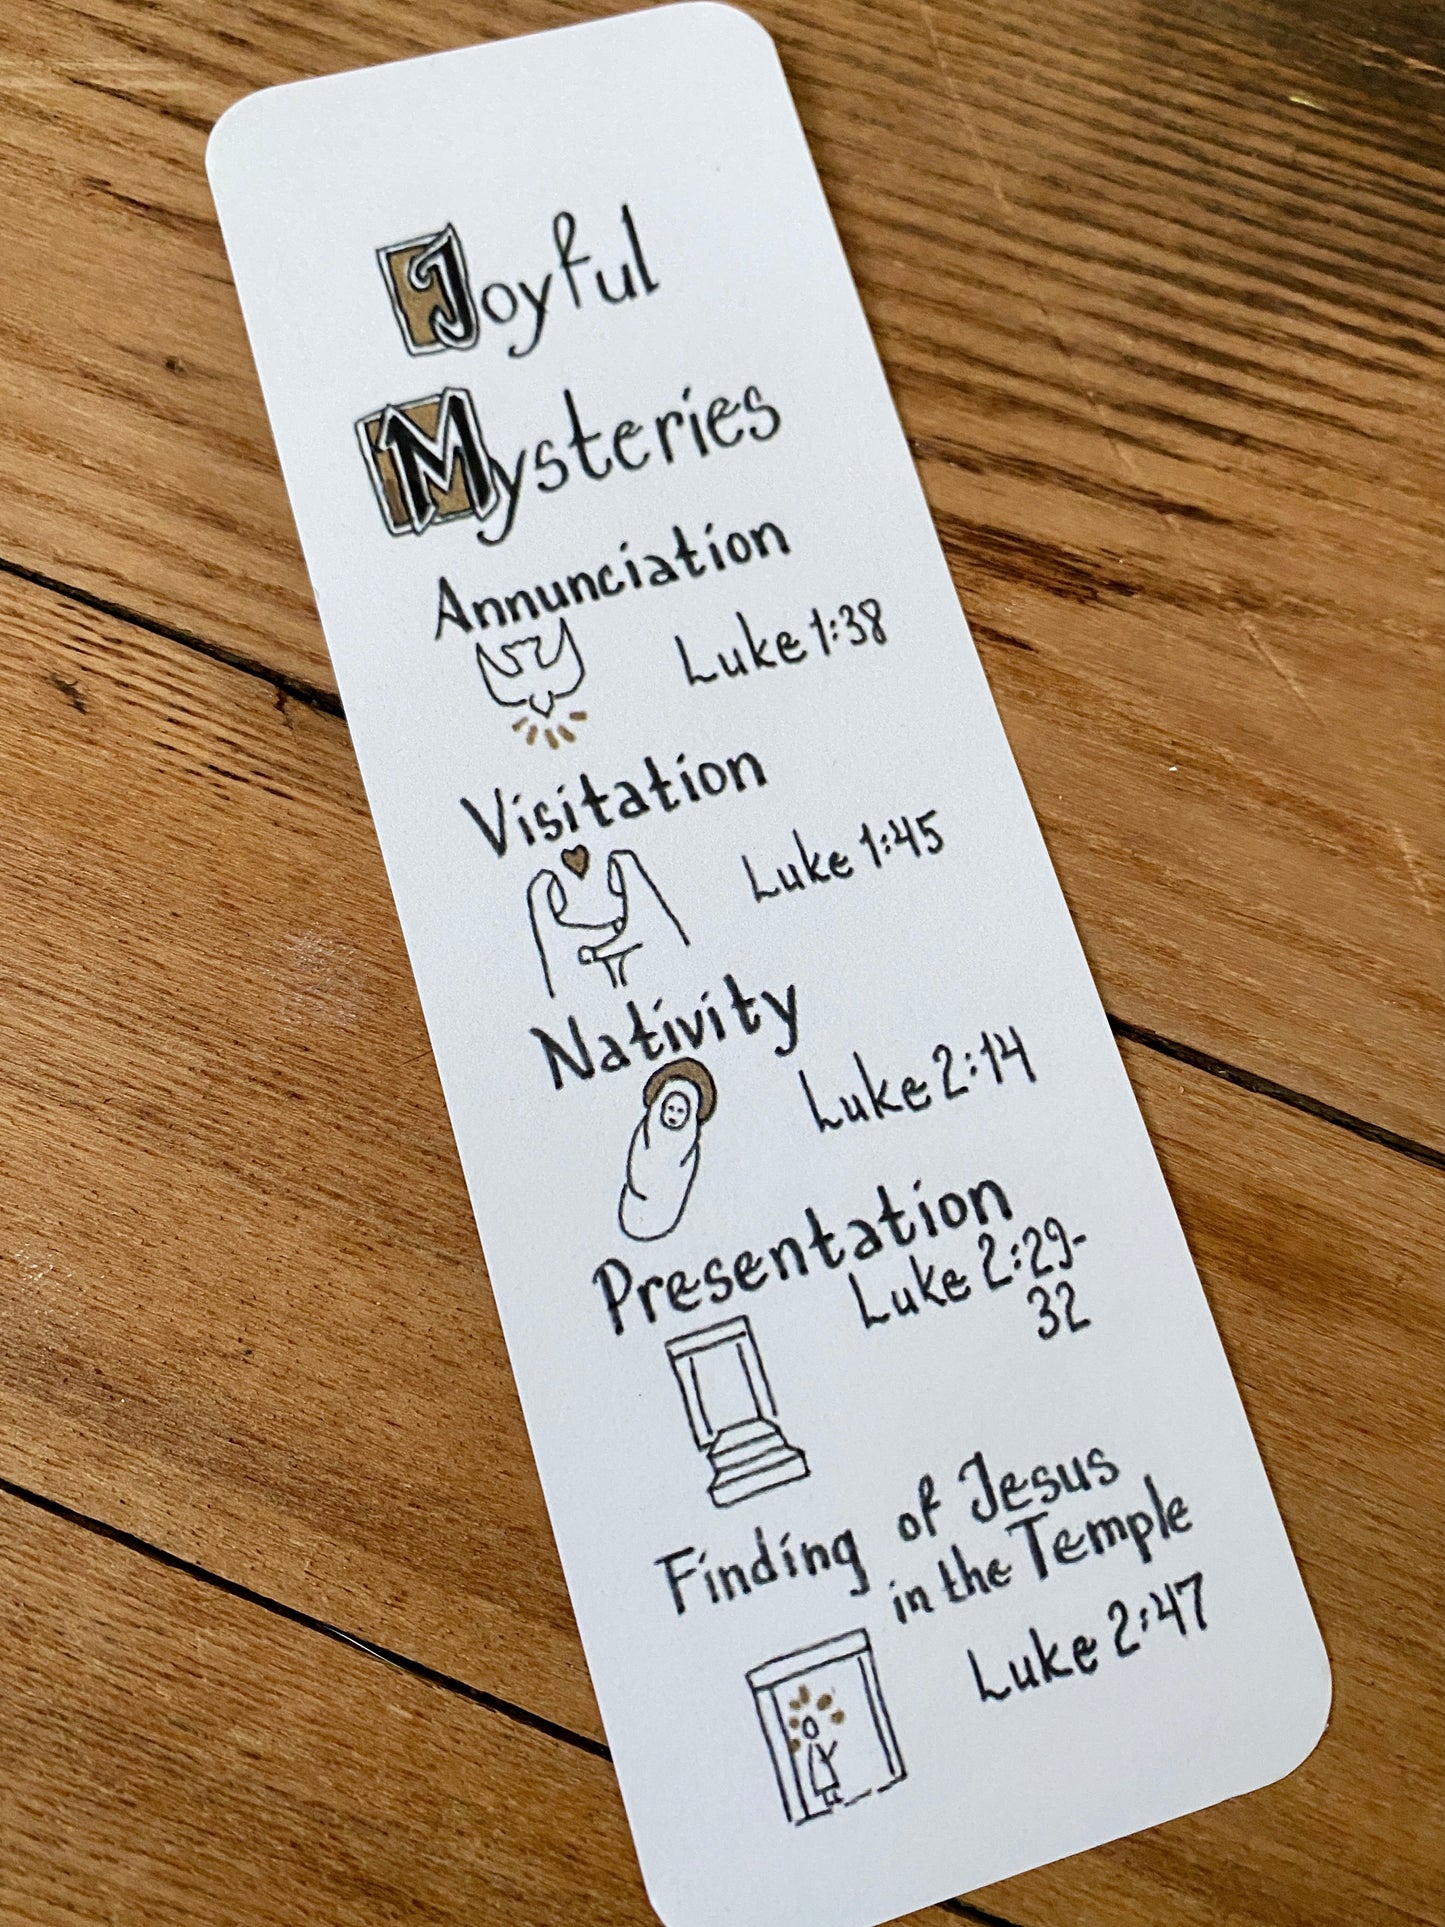 Joyful
Mysteries
Annunciation
Luke 1:38
Visitation
Luke 1:45
Nativity
Luke 2:14
Presentation
Luke 2:29-
32
Finding of Jesus
in the Temple
Luke 2:47